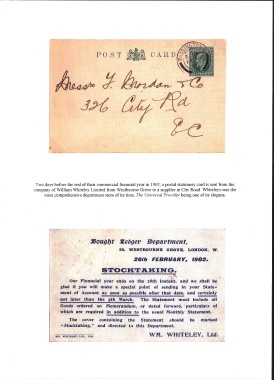 POST CARD
Messrs F. Mordan & Co
326 City Rd
EC
Two days before the end of their commercial financial year in 1902, a postal stationery card is sent from the
company of William Whiteley Limited from Westbourne Grove to a supplier in City Road. Whiteleys was the
most comprehensive department store of its time, The Universal Provider being one of its slogans.
Bought Ledger Department,
39, WESTBOURNE GROVE, LONDON, W.
26th FEBRUARY, 1902.
STOCKTAKING.
Our Financial year ends on the 28th instant, and we shall be
glad if you will make a special point of sending in your State-
ment of Account as soon as possible after that date, and certainly
not later than the 5th March. The Statement must include all
Goods ordered on Memorandum, or dated forward, particulars of
which are required in addition to the usual Monthly Statement.
The cover containing the Statement should be marked
"Stocktaking," and directed to this Department.
WM. WHITELEY, Ltd.
WM. WHITELEY, LTD.